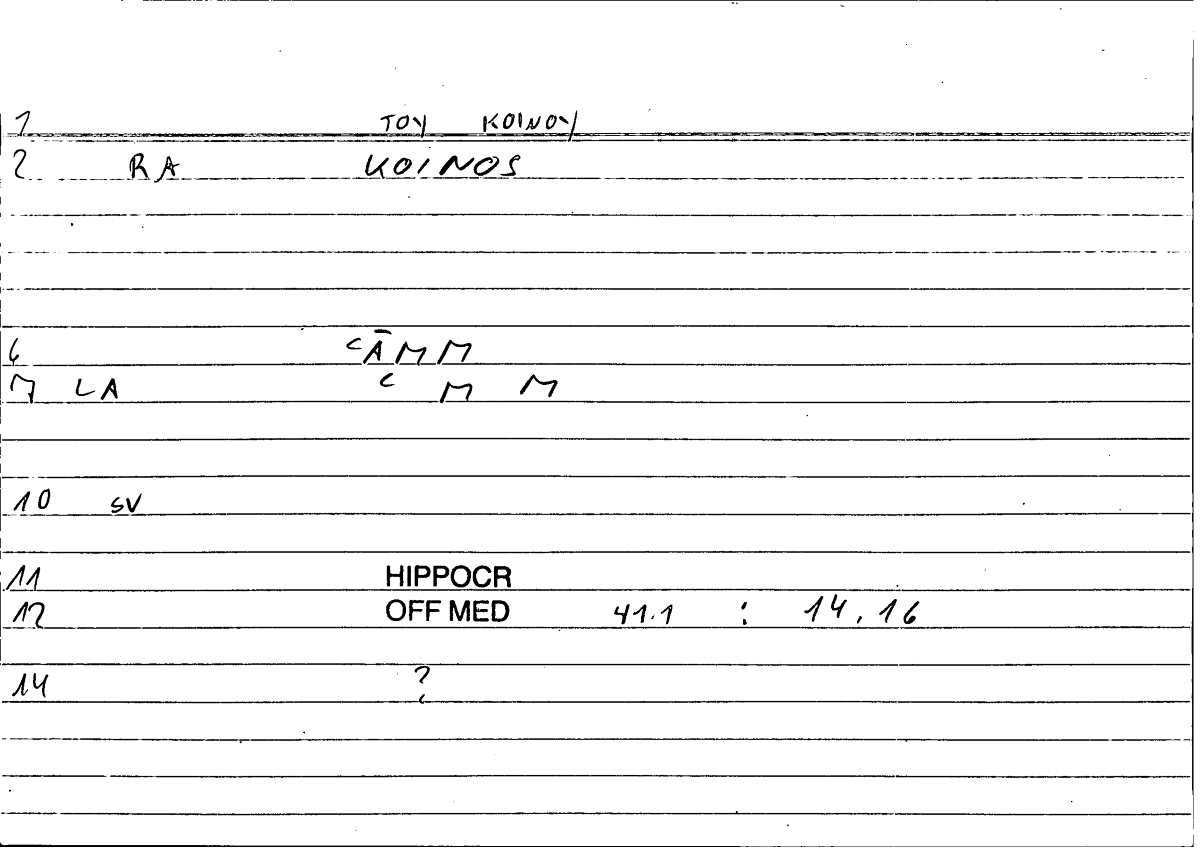 1 ΤΟΥ ΚΟΙΝΟΥ
2 RA KOINOS
6 ᶜĀMM
7 LA ᶜ M M
10 SV
11 HIPPOCR
12 OFF MED 41.1 : 14.16
14 ?